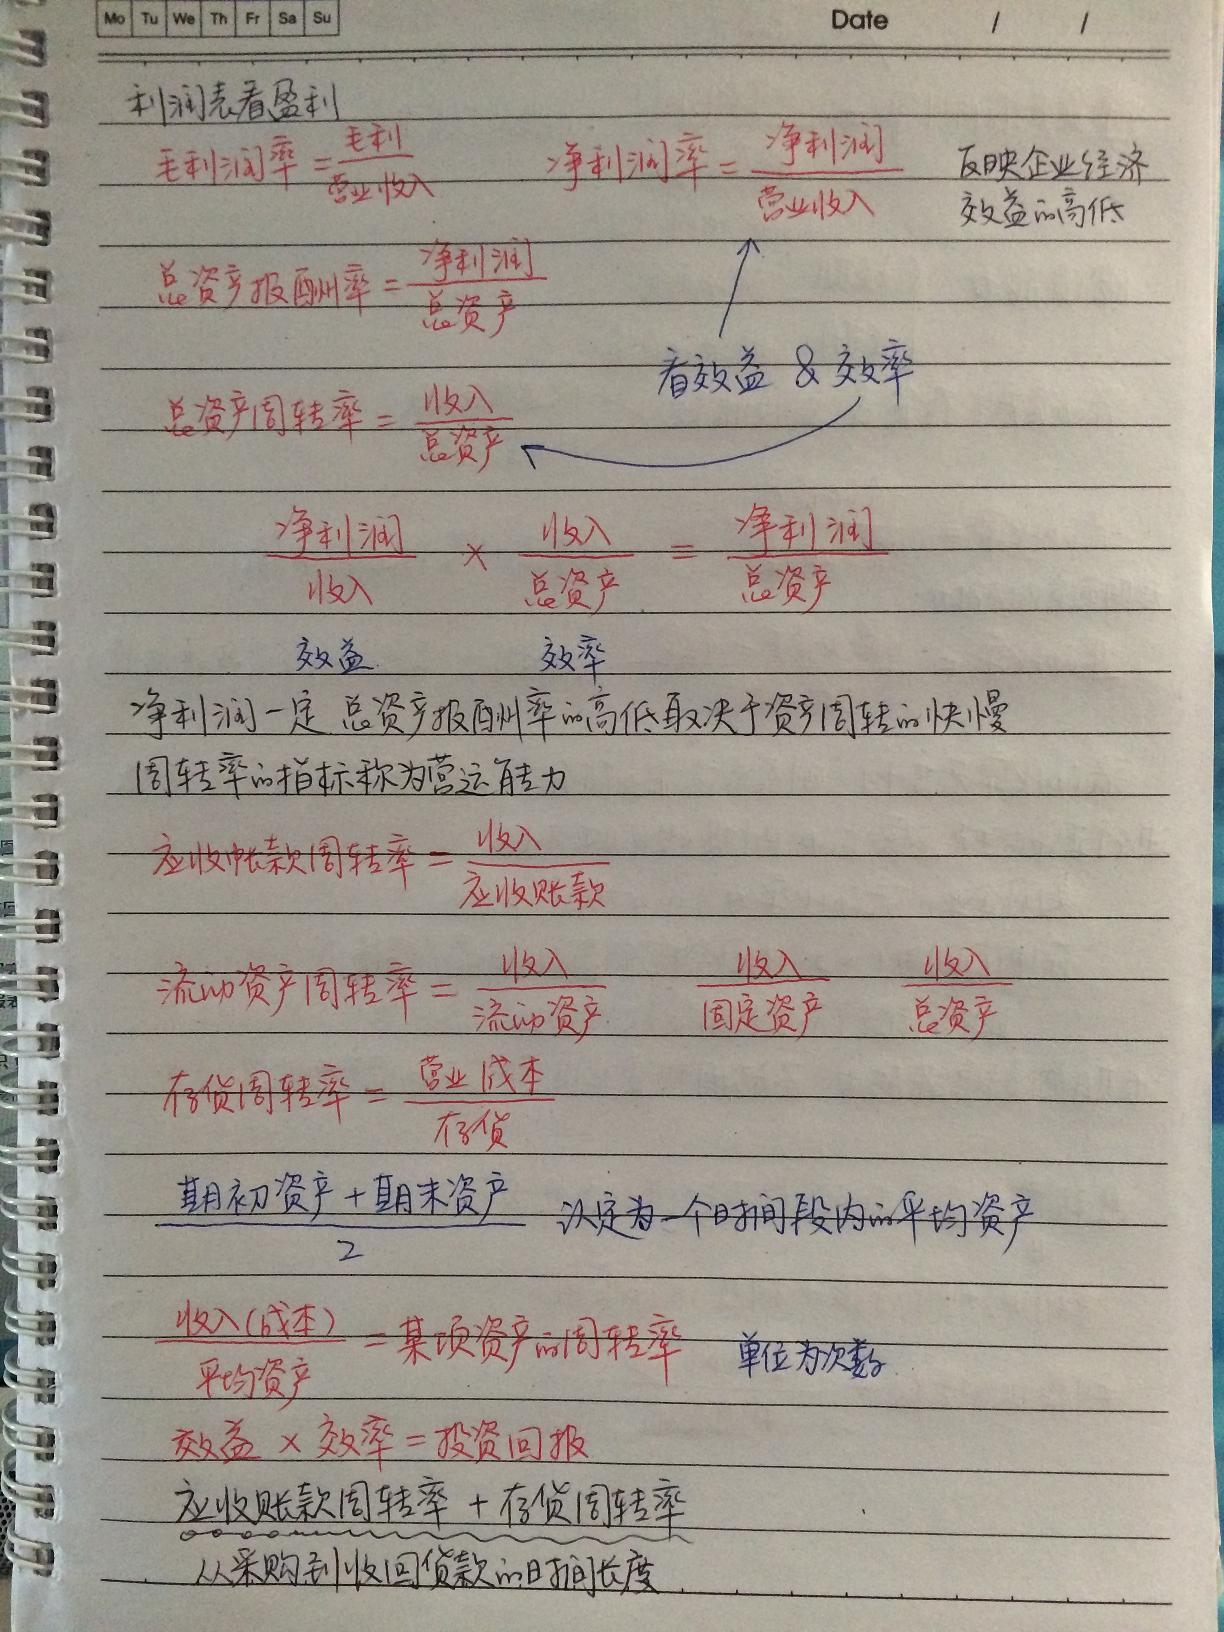 Mo Tu We Th Fr Sa Su Date / /
利润表看盈利
毛利润率 = 毛利 / 营业收入 净利润率 = 净利润 / 营业收入 反映企业经济
效益的高低
总资产报酬率 = 净利润 / 总资产
看效益 & 效率
总资产周转率 = 收入 / 总资产
净利润 / 收入 × 收入 / 总资产 = 净利润 / 总资产
效益 效率
净利润一定 总资产报酬率的高低取决于资产周转的快慢
周转率的指标称为营运能力
应收帐款周转率 = 收入 / 应收账款
流动资产周转率 = 收入 / 流动资产 收入 / 固定资产 收入 / 总资产
存货周转率 = 营业成本 / 存货
期初资产 + 期末资产 / 2 认定为一个时间段内的平均资产
收入(成本) / 平均资产 = 某项资产的周转率 单位为次数
效益 × 效率 = 投资回报
应收账款周转率 + 存货周转率
从采购到收回货款的时间长度